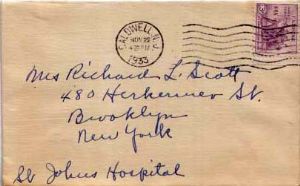 CALDWELL, N.J.
NOV 22
1933
Mrs Richard L. Scott
480 Herkermer St.
Brooklyn
New York
St Johns Hospital